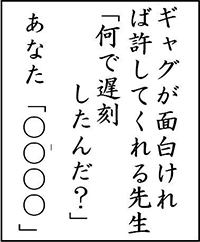 ギャグが面白けれ
ば許してくれる先生
「何で遅刻
したんだ？」
あなた「○○○○」